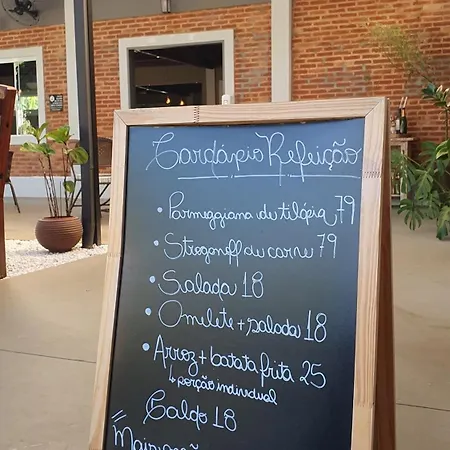 Cardápio Refeição
• Parmeggiana de tilápia 79
• Strogonoff de carne 79
• Salada 18
• Omelete + salada 18
• Arroz + batata frita 25
↳ porção individual
Caldo 18